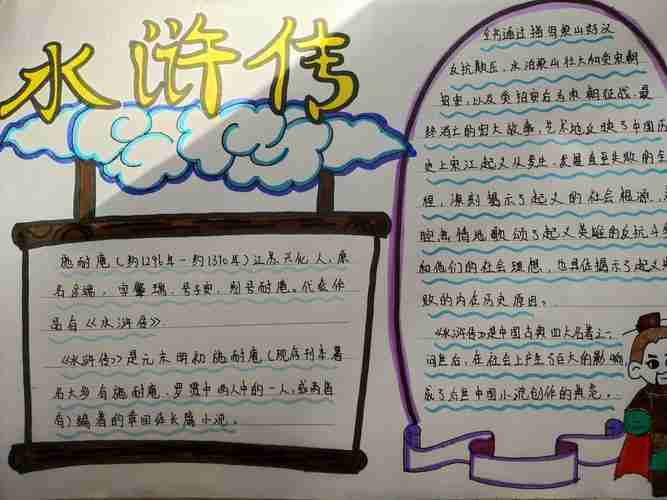 水浒传
施耐庵(约1296年-约1370年)江苏兴化人,原
名彦端,字肇瑞,号子安,别号耐庵。代表作
品有《水浒传》
《水浒传》是元末明初施耐庵(现存刊本署
名大多有施耐庵、罗贯中两人中的一人,或两者皆
有)编著的章回体长篇小说。
全书通过描写梁山好汉
反抗欺压、水泊梁山壮大和受宋朝
招安,以及受招安后为宋朝征战,最
终消亡的宏大故事,艺术地反映了中国历
史上宋江起义从发生、发展直至失败的全
程,深刻揭示了起义的社会根源,
腔热情地歌颂了起义英雄的反抗斗争
和他们的社会理想,也具体揭示了起义
败的内在历史原因。
《水浒传》是中国古典四大名著之一,
问世后,在社会上产生了巨大的影响
成了后世中国小说创作的典范。